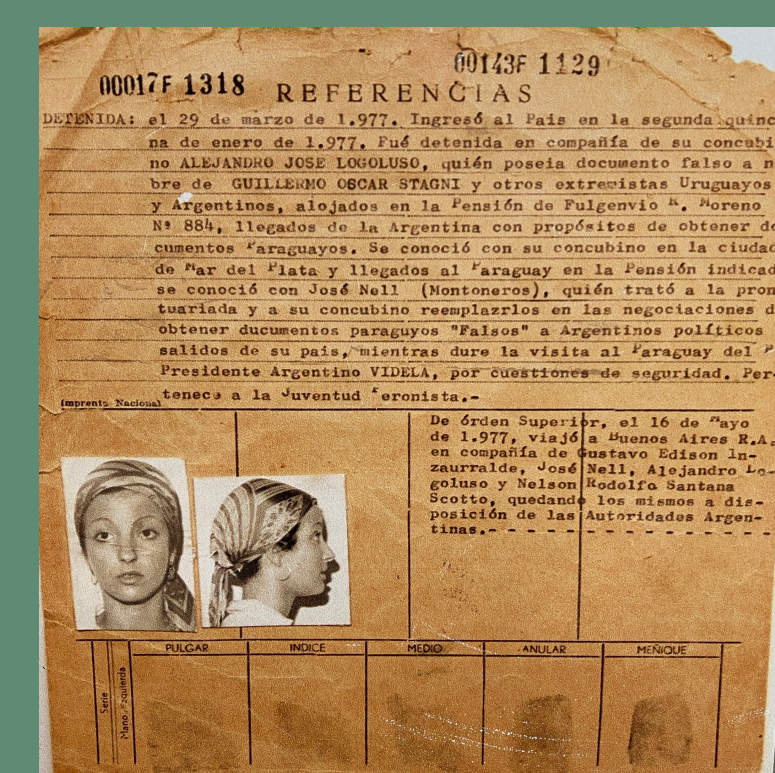 00143F 1129
00017F 1318
REFERENCIAS
DETENIDA: el 29 de marzo de 1.977. Ingresó al Pais en la segunda quinc
na de enero de 1.977. Fué detenida en compañía de su concubi
no ALEJANDRO JOSE LOGOLUSO, quién poseia documento falso a n
bre de GUILLERMO OSCAR STAGNI y otros extremistas Uruguayos
y Argentinos, alojados en la Pensión de Fulgenvio R. Moreno
Nº 884, llegados de la Argentina con propósitos de obtener do
cumentos Paraguayos. Se conoció con su concubino en la ciudad
de Mar del Plata y llegados al Paraguay en la Pensión indicad
se conoció con José Nell (Montoneros), quién trató a la pron
tuariada y a su concubino reemplazrlos en las negociaciones d
obtener ducumentos paraguyos "Falsos" a Argentinos políticos
salidos de su pais, mientras dure la visita al Paraguay del P
Presidente Argentino VIDELA, por cuestiones de seguridad. Per-
tenece a la Juventud Peronista.-
Imprenta Nacional
De órden Superior, el 16 de Mayo
de 1.977, viajó a Buenos Aires R.A.
en compañía de Gustavo Edison In-
zaurralde, José Nell, Alejandro Lo-
goluso y Nelson Rodolfo Santana
Scotto, quedando los mismos a dis-
posición de las Autoridades Argen-
tinas.- - - - - - - - - - - - - - -
PULGAR INDICE MEDIO ANULAR MEÑIQUE
Serie
Mano Izquierda